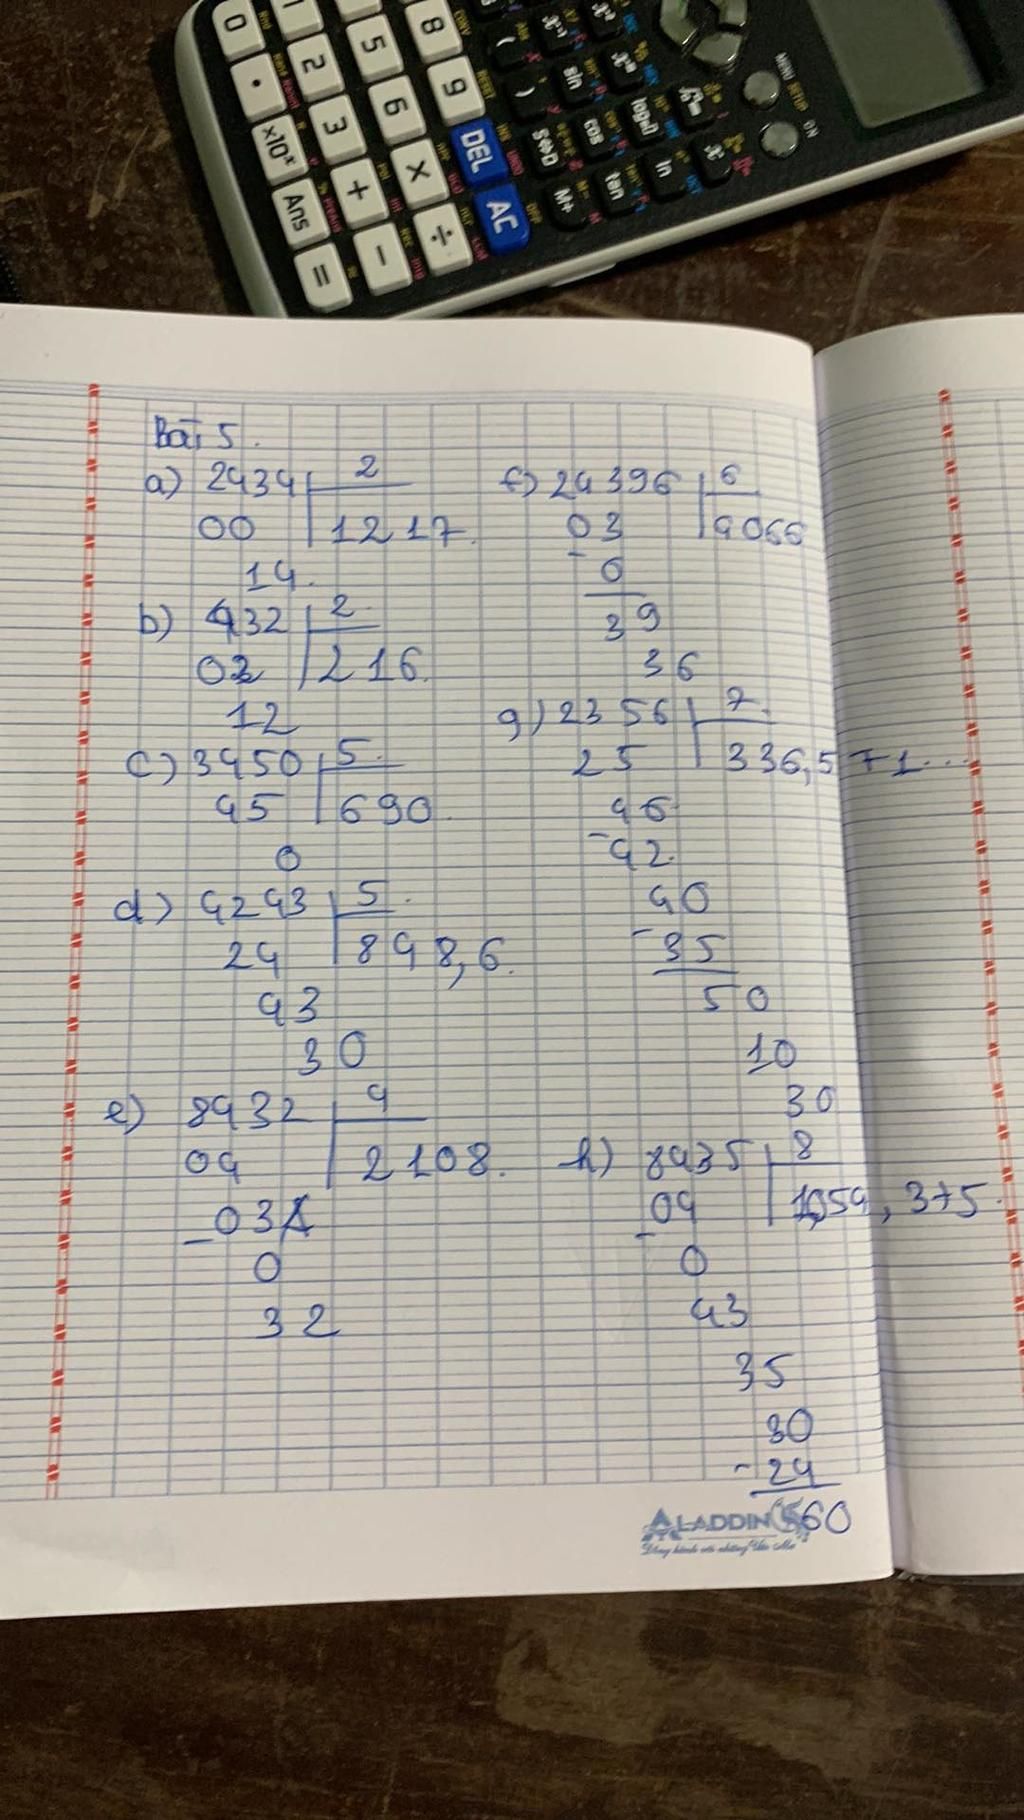 Bài 5.
a) 2434 2
00 1217.
14.
b) 432 2
03 216.
12
c) 3450 5
45 690.
0
d) 4243 5
24 848,6.
43
30
e) 8432 4
04 2108.
- 03
0
32
f) 24396 6
03 4066
- 0
39
36
g) 2356 7
25 336,571...
46
- 42
40
- 35
50
10
30
h) 8435 8
04 1054,375.
- 0
43
35
30
- 24
60
ALADDIN
0 1 2 3 5 6 8 9
. ×10ˣ Ans =
+ - × ÷
DEL AC
( ) S⇔D M+
sin cos tan
ln
MENU SETUP
ON